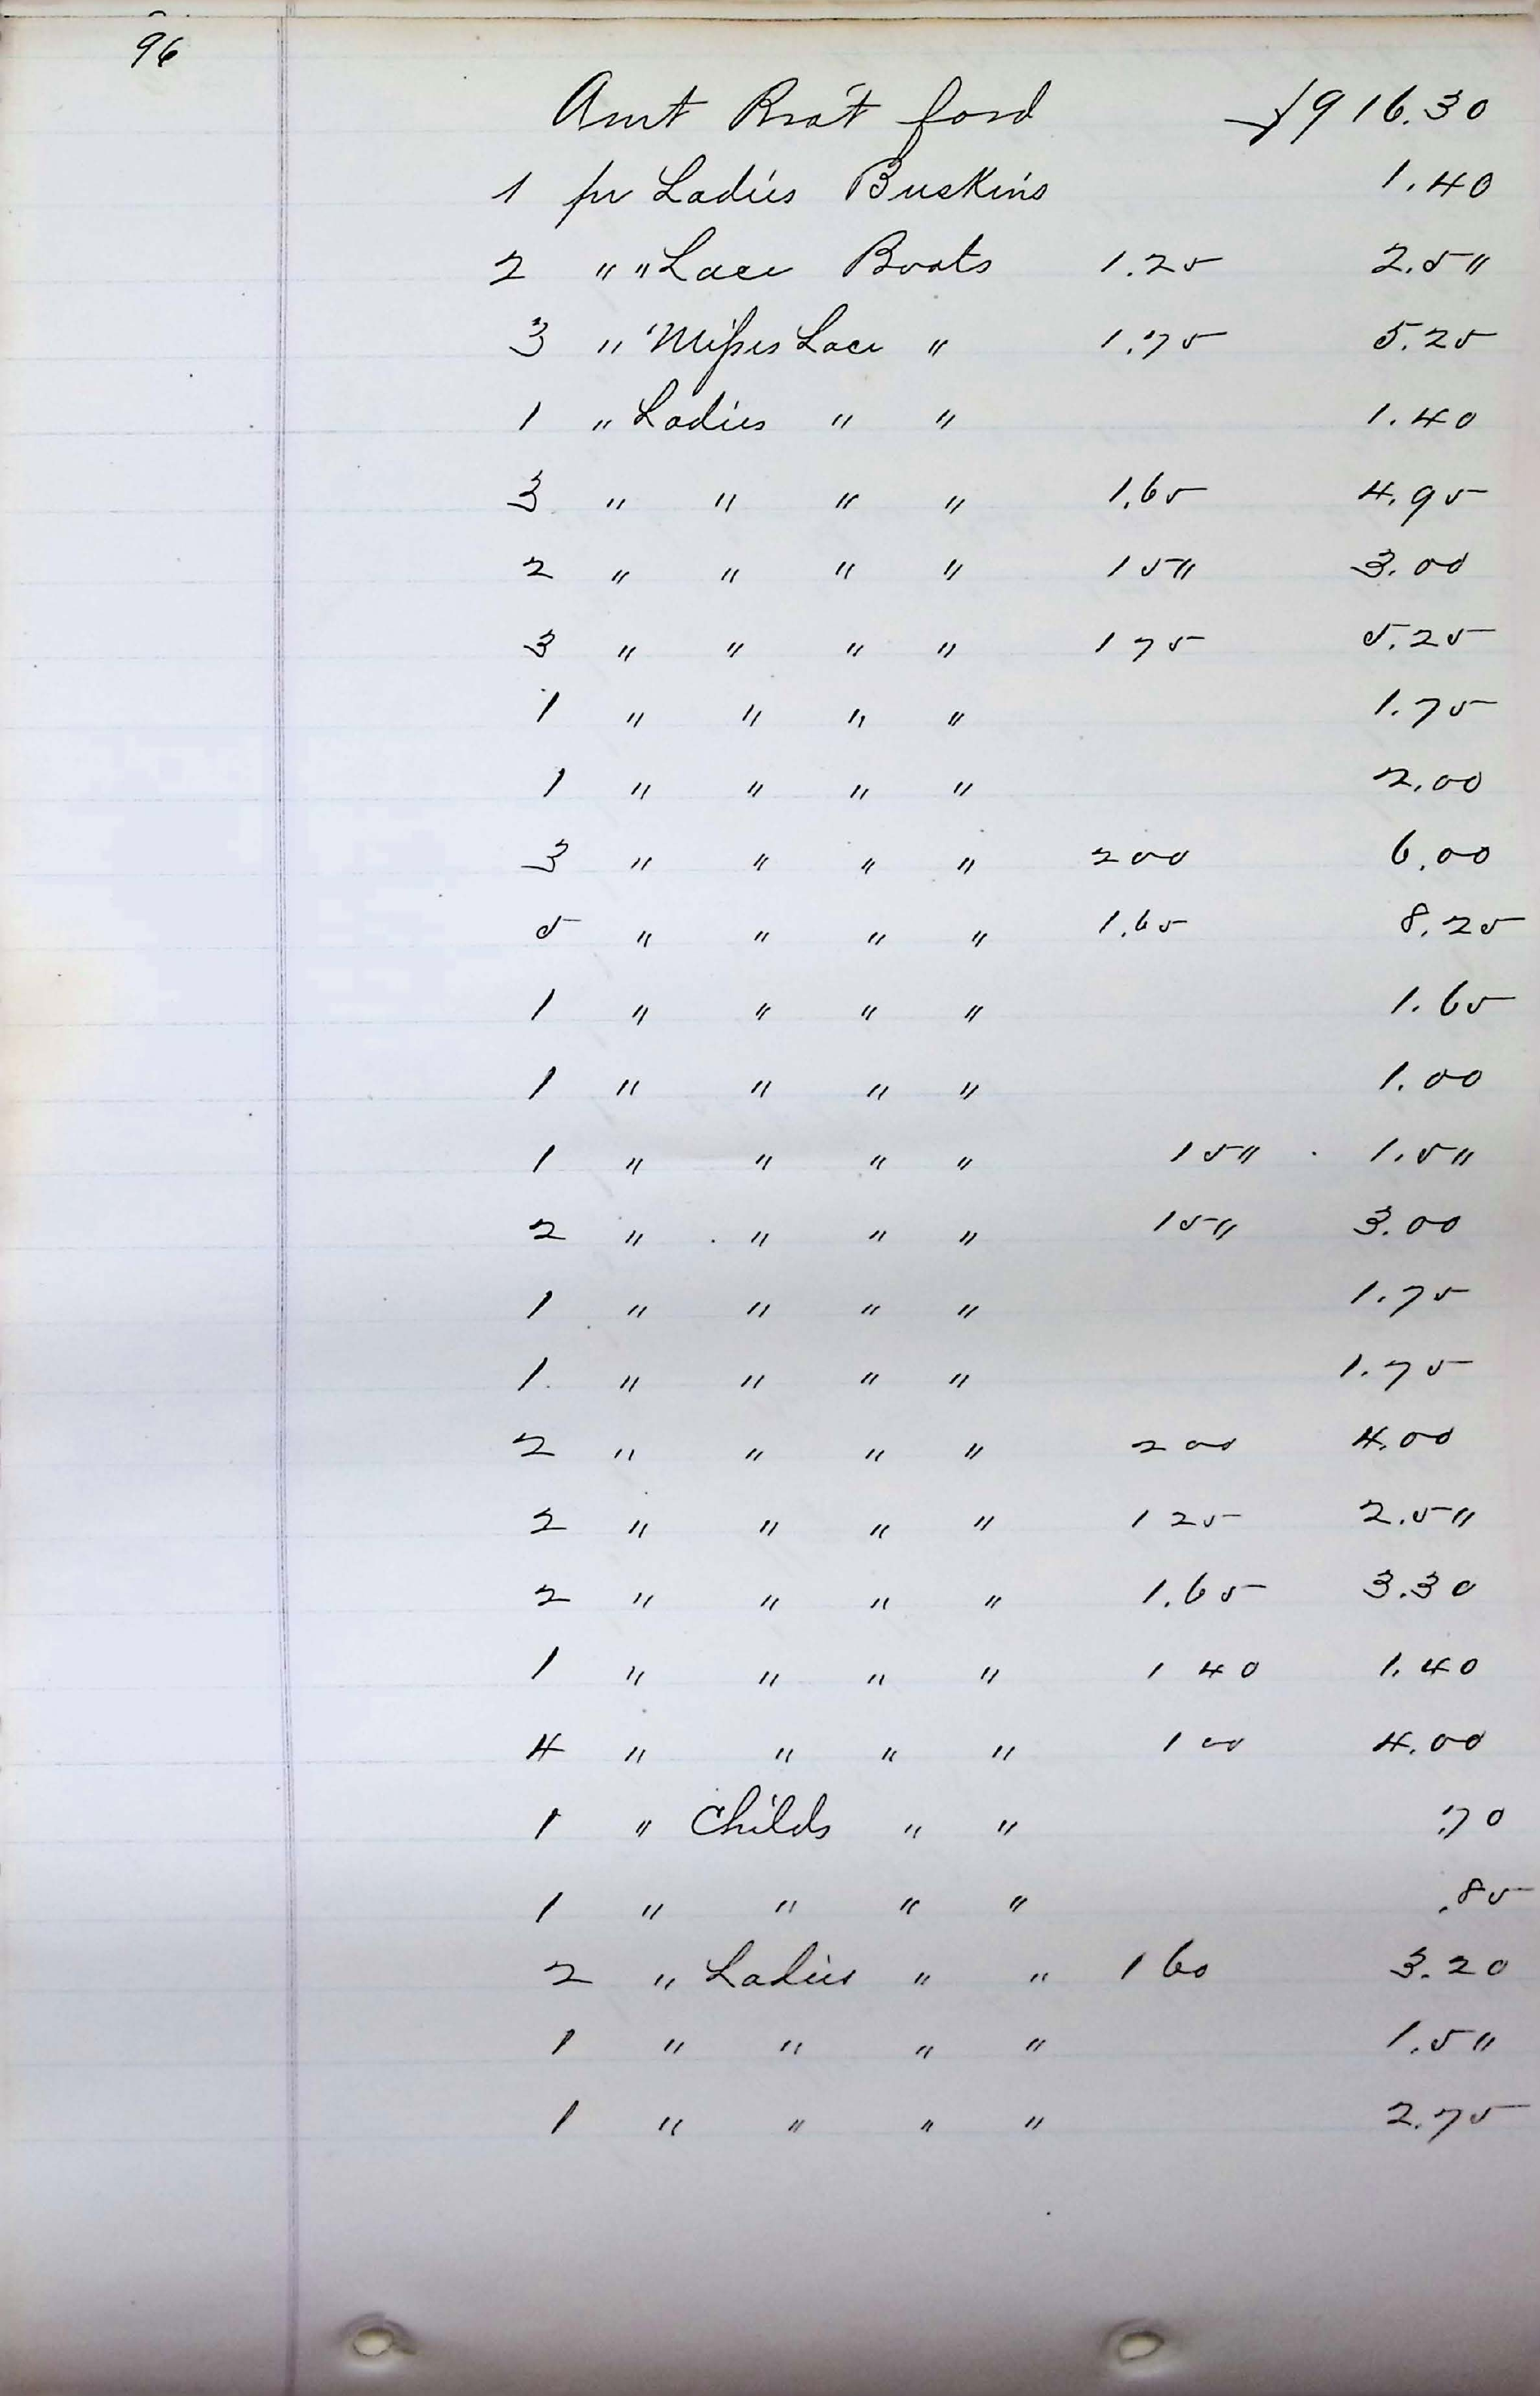 96
Amt Brot ford $916.30
1 pr Ladies Buskins 1.40
2 " " Lace Boots 1.25 2.5"
3 " Misses Lace " 1.75 5.25
1 " Ladies " " 1.40
3 " " " " 1.65 4.95
2 " " " " 15" 3.00
3 " " " " 175 5.25
1 " " " " 1.75
1 " " " " 2.00
3 " " " " 200 6.00
5 " " " " 1.65 8.25
1 " " " " 1.65
1 " " " " 1.00
1 " " " " 15" 1.5"
2 " " " " 15" 3.00
1 " " " " 1.75
1 " " " " 1.75
2 " " " " 200 4.00
2 " " " " 125 2.5"
2 " " " " 1.65 3.30
1 " " " " 140 1.40
4 " " " " 100 4.00
1 " Childs " " .70
1 " " " " .85
2 " Ladies " " 160 3.20
1 " " " " 1.5"
1 " " " " 2.75